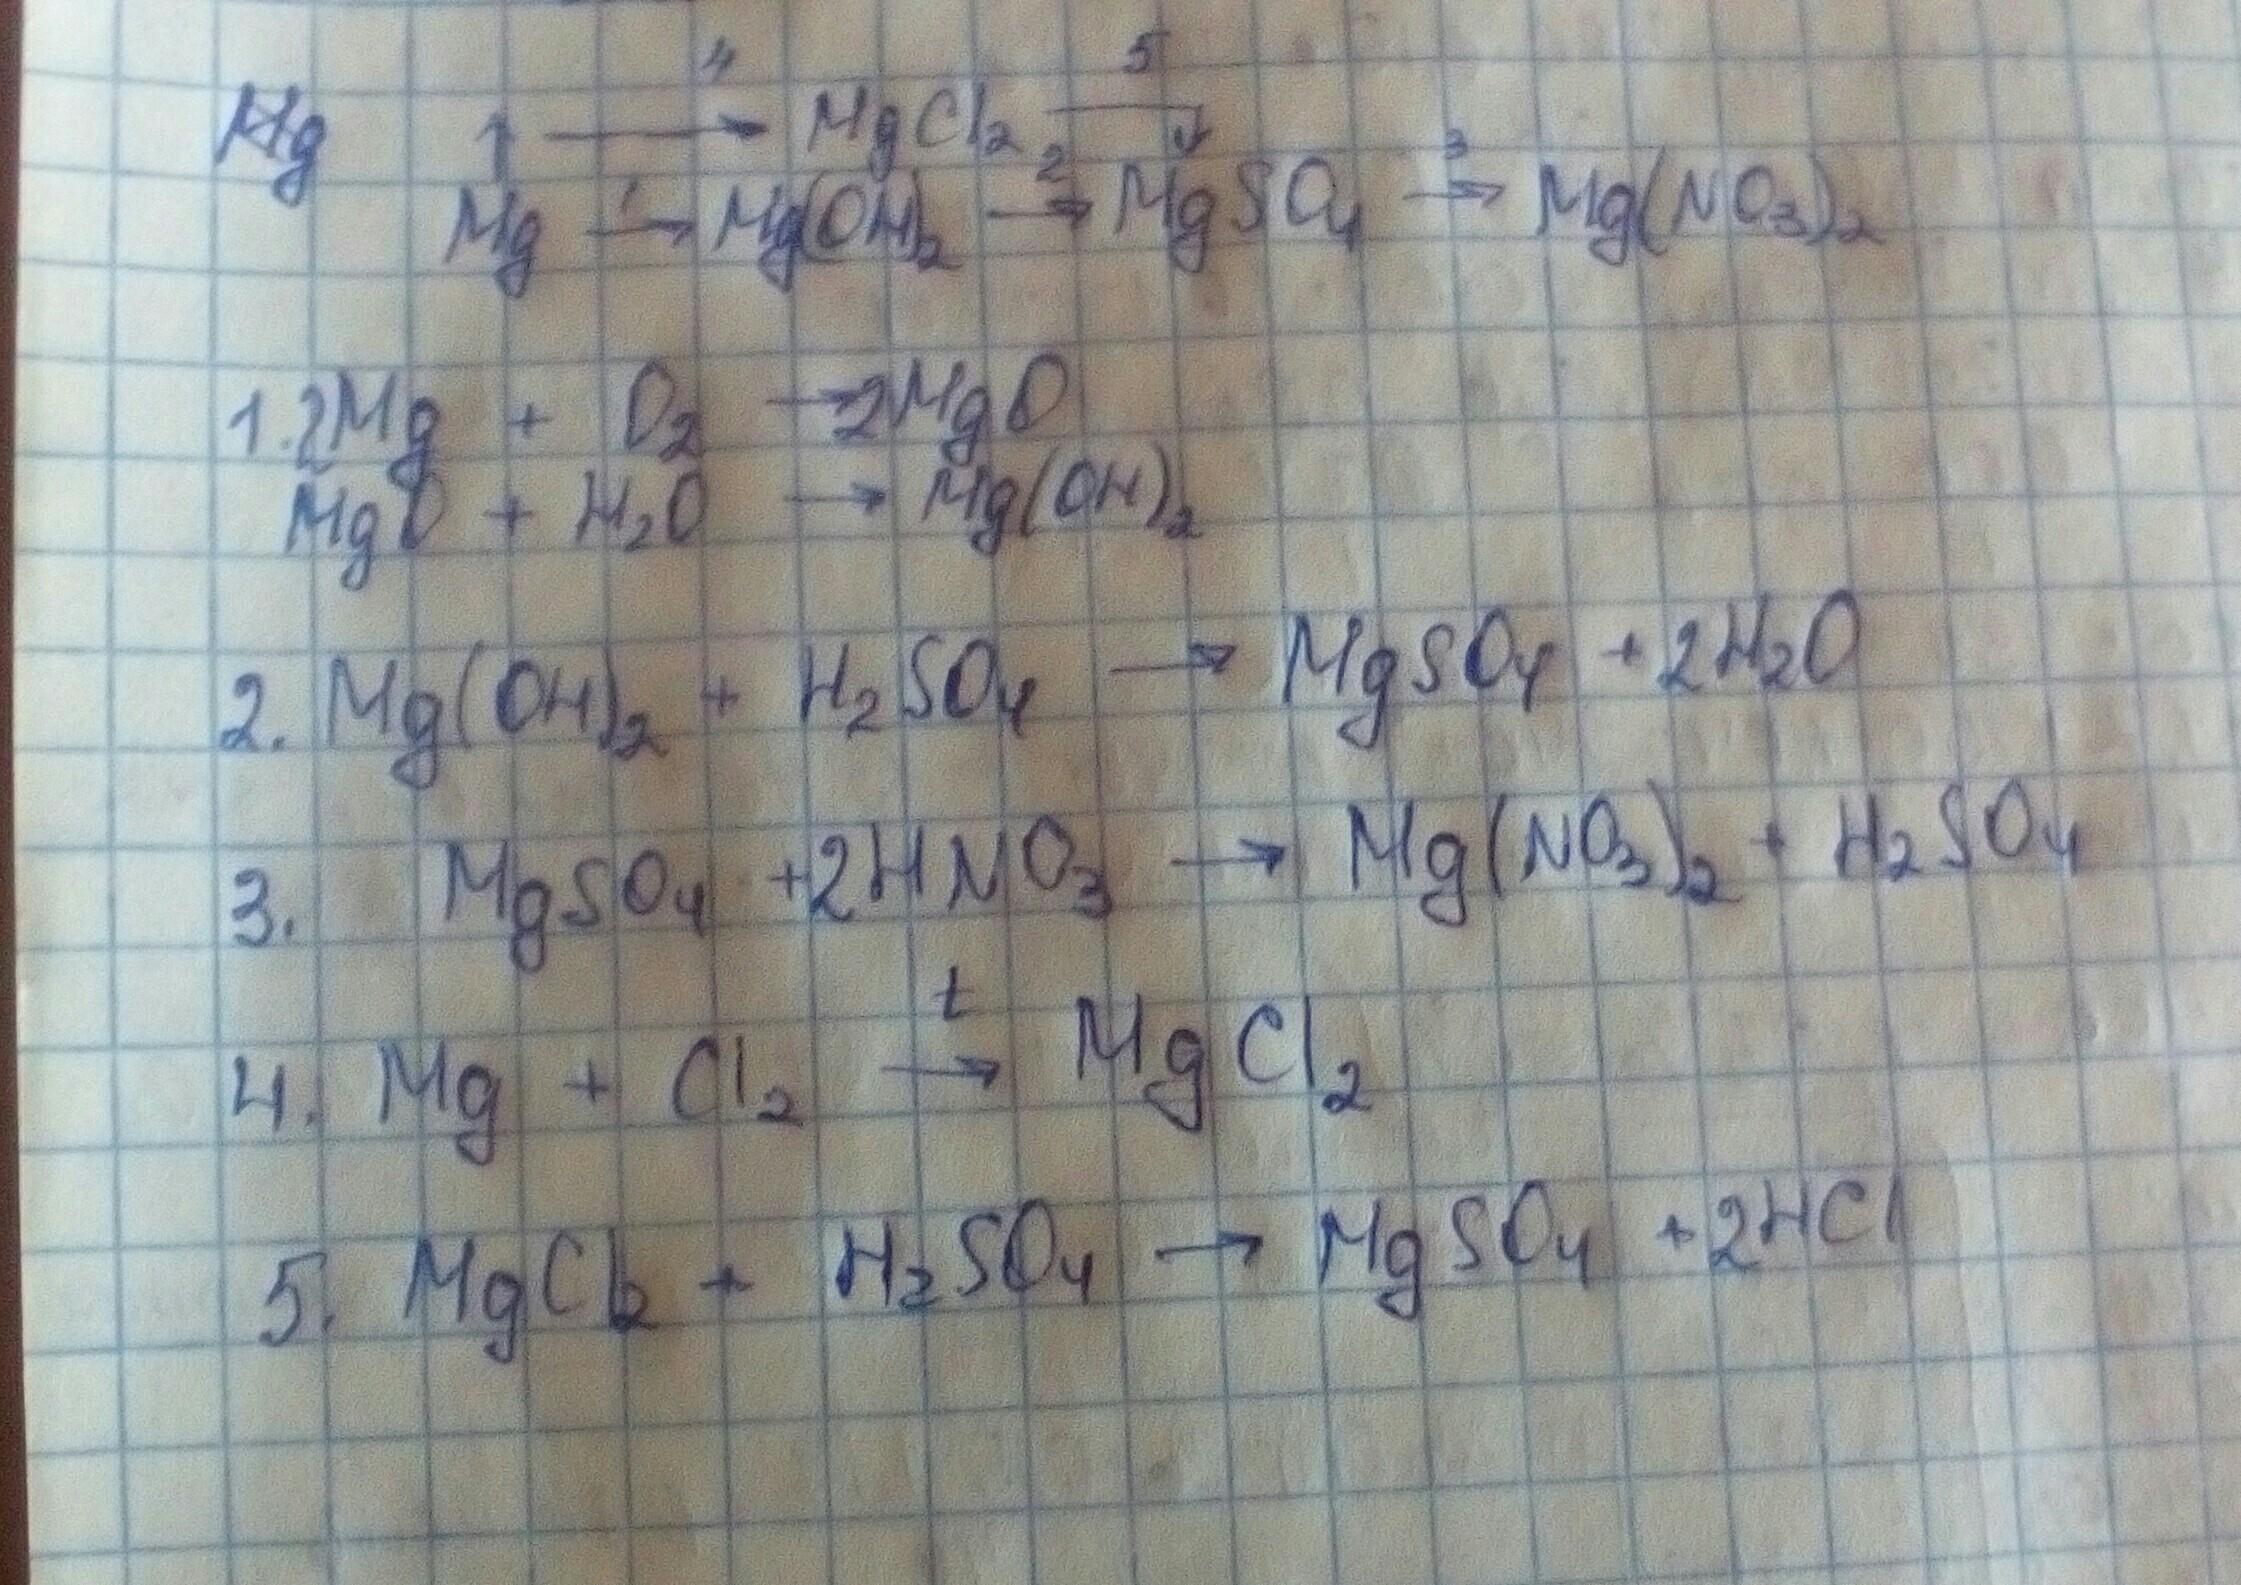 4 5
Mg ↑ ⟶ MgCl₂ ⟶
1 2 3
Mg → Mg(OH)₂ → MgSO₄ → Mg(NO₃)₂
1. 2Mg + O₂ → 2MgO
MgO + H₂O → Mg(OH)₂
2. Mg(OH)₂ + H₂SO₄ → MgSO₄ + 2H₂O
3. MgSO₄ + 2HNO₃ → Mg(NO₃)₂ + H₂SO₄
t
4. Mg + Cl₂ → MgCl₂
5. MgCl₂ + H₂SO₄ → MgSO₄ + 2HCl